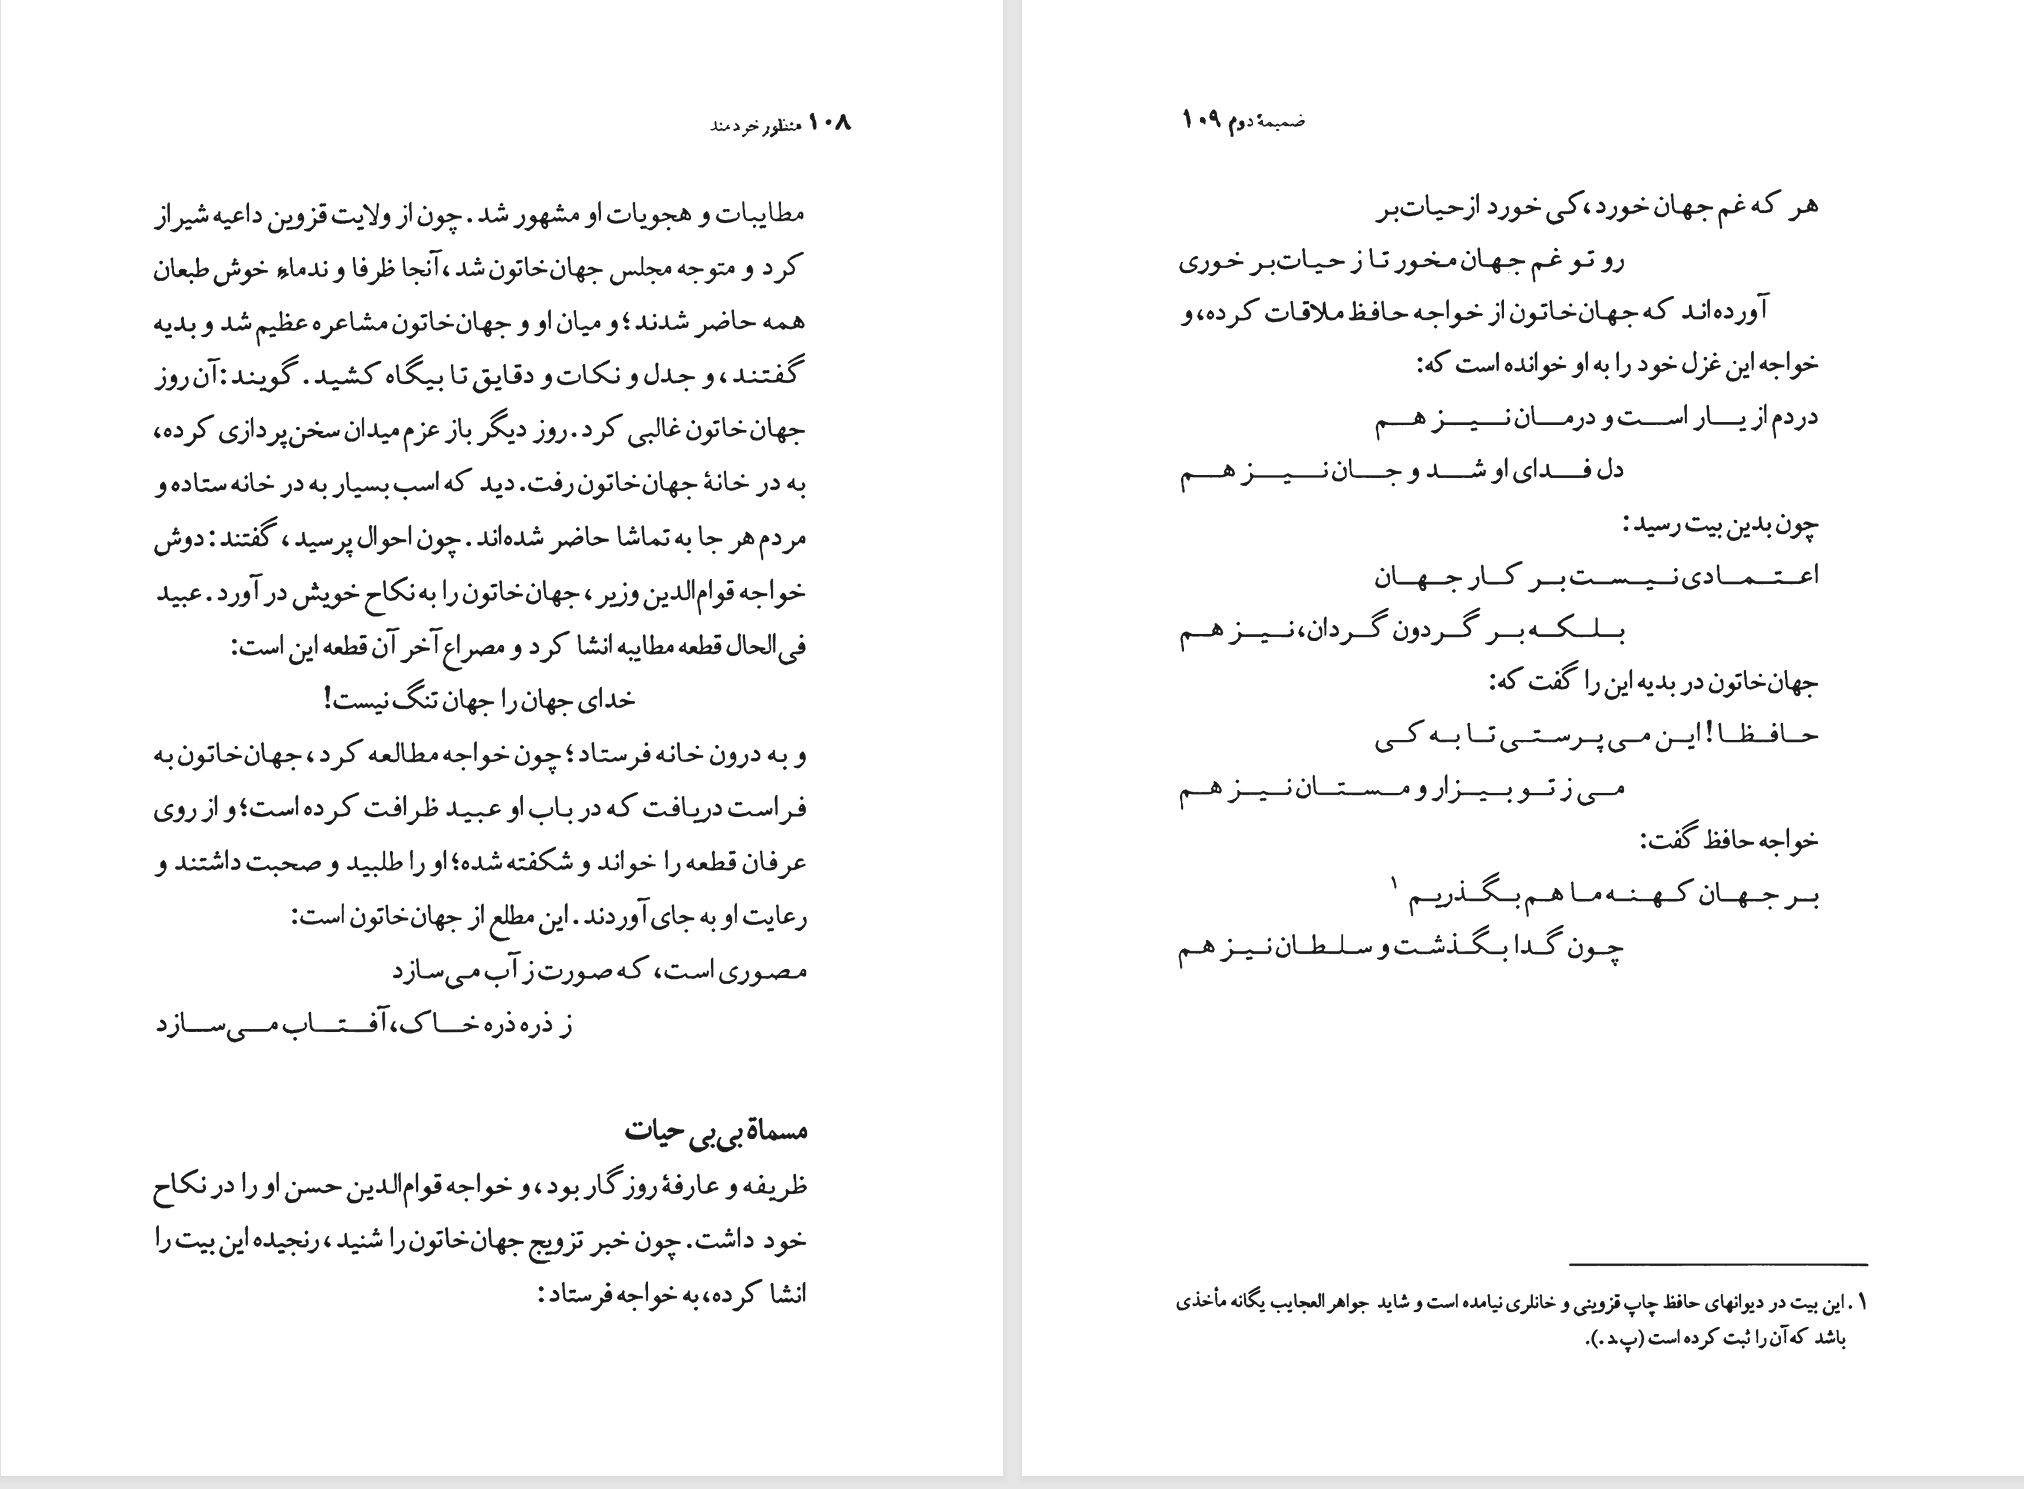 ۱۰۸ منظور خردمند
مطایبات و هجویات او مشهور شد. چون از ولایت قزوین داعیه شیراز
کرد و متوجه مجلس جهان‌خاتون شد، آنجا ظرفا و ندماءِ خوش طبعان
همه حاضر شدند؛ و میان او و جهان‌خاتون مشاعره عظیم شد و بدیه
گفتند، و جدل و نکات و دقایق تا بیگاه کشید. گویند: آن روز
جهان‌خاتون غالبی کرد. روز دیگر باز عزم میدان سخن‌پردازی کرده،
به در خانهٔ جهان‌خاتون رفت. دید که اسب بسیار به در خانه ستاده و
مردم هر جا به تماشا حاضر شده‌اند. چون احوال پرسید، گفتند: دوش
خواجه قوام‌الدین وزیر، جهان‌خاتون را به نکاح خویش در آورد. عبید
فی‌الحال قطعه مطایبه انشا کرد و مصراع آخر آن قطعه این است:
خدای جهان را جهان تنگ نیست!
و به درون خانه فرستاد؛ چون خواجه مطالعه کرد، جهان‌خاتون به
فراست دریافت که در باب او عبید ظرافت کرده است؛ و از روی
عرفان قطعه را خواند و شکفته شده؛ او را طلبید و صحبت داشتند و
رعایت او به جای آوردند. این مطلع از جهان‌خاتون است:
مصوری است، که صورت ز آب می‌سازد
ز ذره ذره خاک، آفتاب می‌سازد
مسماة بی‌بی حیات
ظریفه و عارفهٔ روزگار بود، و خواجه قوام‌الدین حسن او را در نکاح
خود داشت. چون خبر تزویج جهان‌خاتون را شنید، رنجیده این بیت را
انشا کرده، به خواجه فرستاد:
ضمیمهٔ دوم ۱۰۹
هر که غم جهان خورد، کی خورد از حیات‌بر
رو تو غم جهان مخور تا ز حیات‌بر خوری
آورده‌اند که جهان‌خاتون از خواجه حافظ ملاقات کرده، و
خواجه این غزل خود را به او خوانده است که:
دردم از یار است و درمان نیز هم
دل فدای او شد و جان نیز هم
چون بدین بیت رسید:
اعتمادی نیست بر کار جهان
بلکه بر گردون گردان، نیز هم
جهان‌خاتون در بدیه این را گفت که:
حافظا! این می پرستی تا به کی
می ز تو بیزار و مستان نیز هم
خواجه حافظ گفت:
بر جهان کهنه ما هم بگذریم ۱
چون گدا بگذشت و سلطان نیز هم
۱. این بیت در دیوانهای حافظ چاپ قزوینی و خانلری نیامده است و شاید جواهر العجایب یگانه مأخذی
باشد که آن را ثبت کرده است (پ.د.).